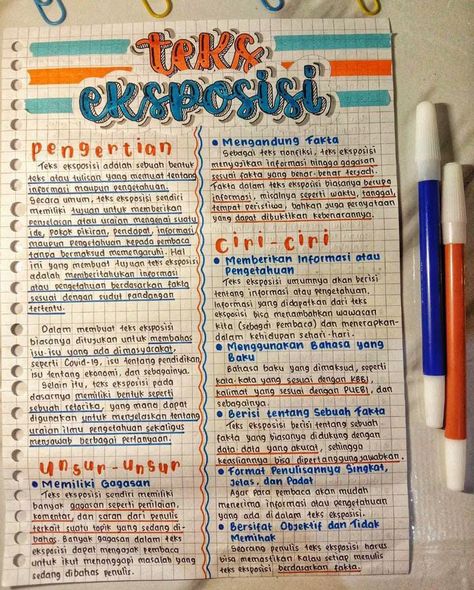 teks
eksposisi
pengertian
Teks eksposisi adalah sebuah bentuk
teks atau tulisan yang memuat tentang
informasi maupun pengetahuan.
Secara umum, teks eksposisi sendiri
memiliki tujuan untuk memberikan
penjelasan atau uraian mengenai suatu
ide, pokok pikiran, pendapat, informasi
maupun pengetahuan kepada pembaca
tanpa bermaksud memengaruhi. Hal
ini yang membuat tujuan teks eksposisi
adalah memberitahukan informasi
atau pengetahuan berdasarkan fakta
sesuai dengan sudut pandangan
tertentu.
Dalam membuat teks eksposisi
biasanya ditujukan untuk membahas
isu-isu yang ada dimasyarakat,
seperti Covid-19, isu tentang pendidikan,
isu tentang ekonomi, dan sebagainya.
Selain itu, teks eksposisi pada
dasarnya memiliki bentuk seperti
sebuah retorika, yang mana dapat
digunakan untuk menjelaskan tentang
uraian ilmu pengetahuan sekaligus
menjawab berbagai pertanyaan.
unsur-unsur
• Memiliki Gagasan
Teks eksposisi sendiri memiliki
banyak gagasan seperti penilaian,
komentar, dan saran dari penulis
terkait suatu topik yang sedang di-
bahas. Banyak gagasan dalam teks
eksposisi dapat mengajak pembaca
untuk ikut menanggapi masalah yang
sedang dibahas penulis.
• Mengandung Fakta
Sebagai teks nonfiksi, teks eksposisi
menyajikan informasi hingga gagasan
sesuai fakta yang benar-benar terjadi.
Fakta dalam teks eksposisi biasanya berupa
informasi, misalnya seperti waktu, tanggal,
tempat peristiwa, bahkan juga pernyataan
yang dapat dibuktikan kebenarannya.
ciri-ciri
• Memberikan Informasi atau
Pengetahuan
Teks eksposisi umumnya akan berisi
tentang informasi atau pengetahuan.
Informasi yang didapatkan dari teks
eksposisi bisa menambahkan wawasan
kita (sebagai pembaca) dan menerapkan-
dalam kehidupan sehari-hari.
• Menggunakan Bahasa yang
Baku
Bahasa baku yang dimaksud, seperti
kata-kata yang sesuai dengan KBBI,
kalimat yang sesuai dengan PUEBI, dan
sebagainya.
• Berisi tentang Sebuah Fakta
Teks eksposisi berisi tentang sebuah
fakta yang biasanya didukung dengan
data-data yang akurat, sehingga
keasliannya bisa dipertanggungjawabkan.
• Format Penulisannya Singkat,
Jelas, dan Padat
Agar para pembaca akan mudah
menerima informasi atau pengetahuan
yang ada dalam teks eksposisi.
• Bersifat Objektif dan Tidak
Memihak
Seorang penulis teks eksposisi harus
bisa memastikan kalau setiap menulis
teks eksposisi berdasarkan fakta.